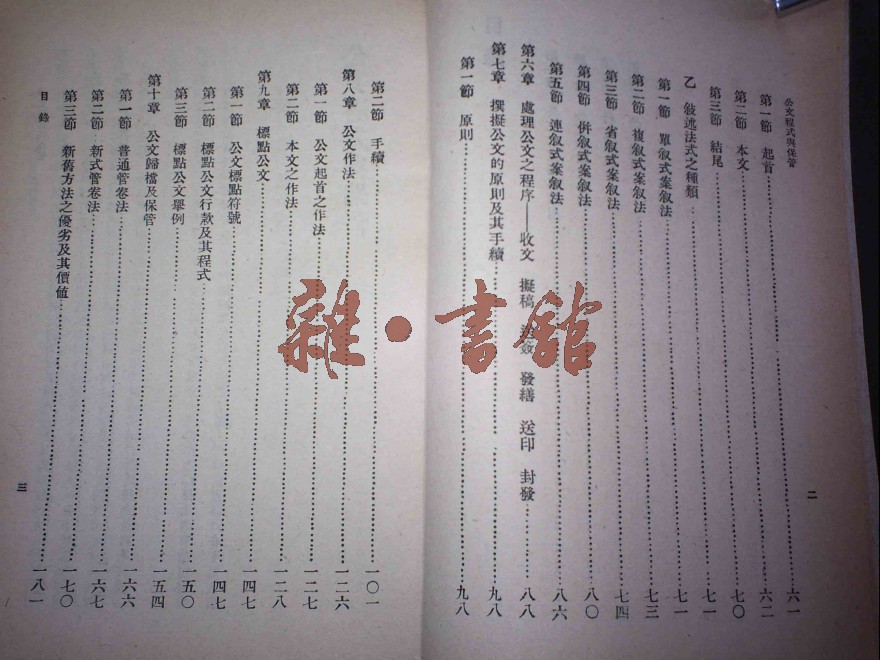 公文程式與保管
第一節 起首……六一
第二節 本文……六二
第三節 結尾……七〇
乙 敍述法式之種類……七一
第一節 單敍式案敍法……七一
第二節 複敍式案敍法……七三
第三節 省敍式案敍法……七四
第四節 併敍式案敍法……八〇
第五節 連敍式案敍法……八六
第六章 處理公文之程序——收文 擬稿 發繕 送印 封發……八八
第七章 撰擬公文的原則及其手續……九八
第一節 原則……九八
二
第二節 手續……一〇一
第八章 公文作法……一二六
第一節 公文起首之作法……一二七
第二節 本文之作法……一二八
第九章 標點公文……一四七
第一節 公文標點符號……一四七
第二節 標點公文行款及其程式……一五〇
第三節 標點公文舉例……一五四
第十章 公文歸檔及保管……一六六
第一節 普通管卷法……一六七
第二節 新式管卷法……一七〇
第三節 新舊方法之優劣及其價値……一八一
目錄
三
雜·書館